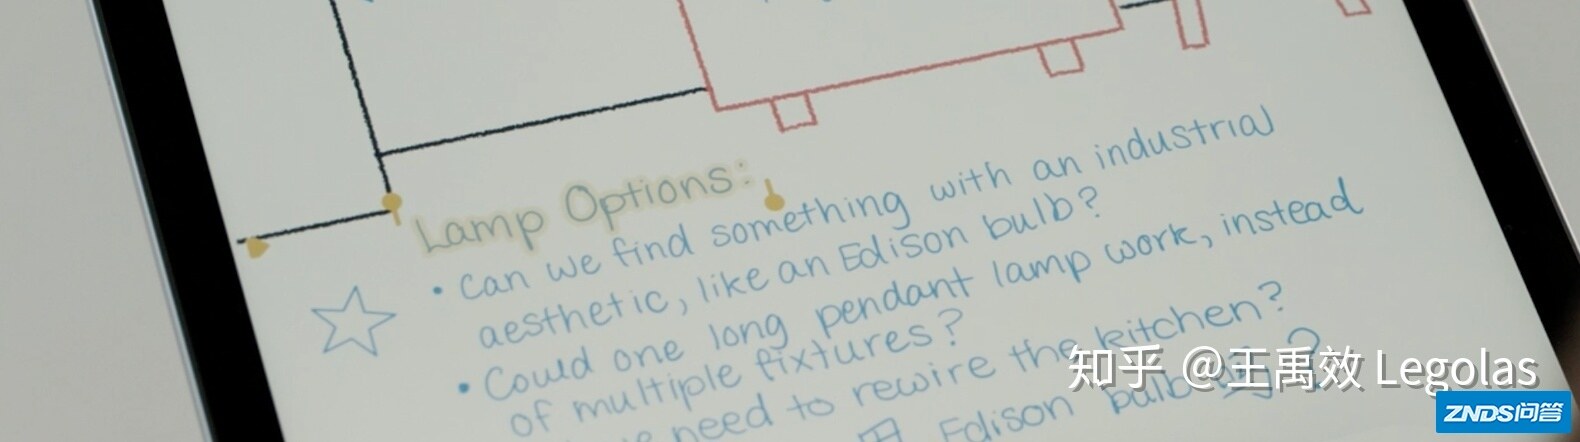 Lamp Options:
• Can we find something with an industrial
aesthetic, like an Edison bulb?
• Could one long pendant lamp work, instead
of multiple fixtures?
need to rewire the kitchen?
Edison bulb
知乎 @王禹效 Legolas
ZNDS问答